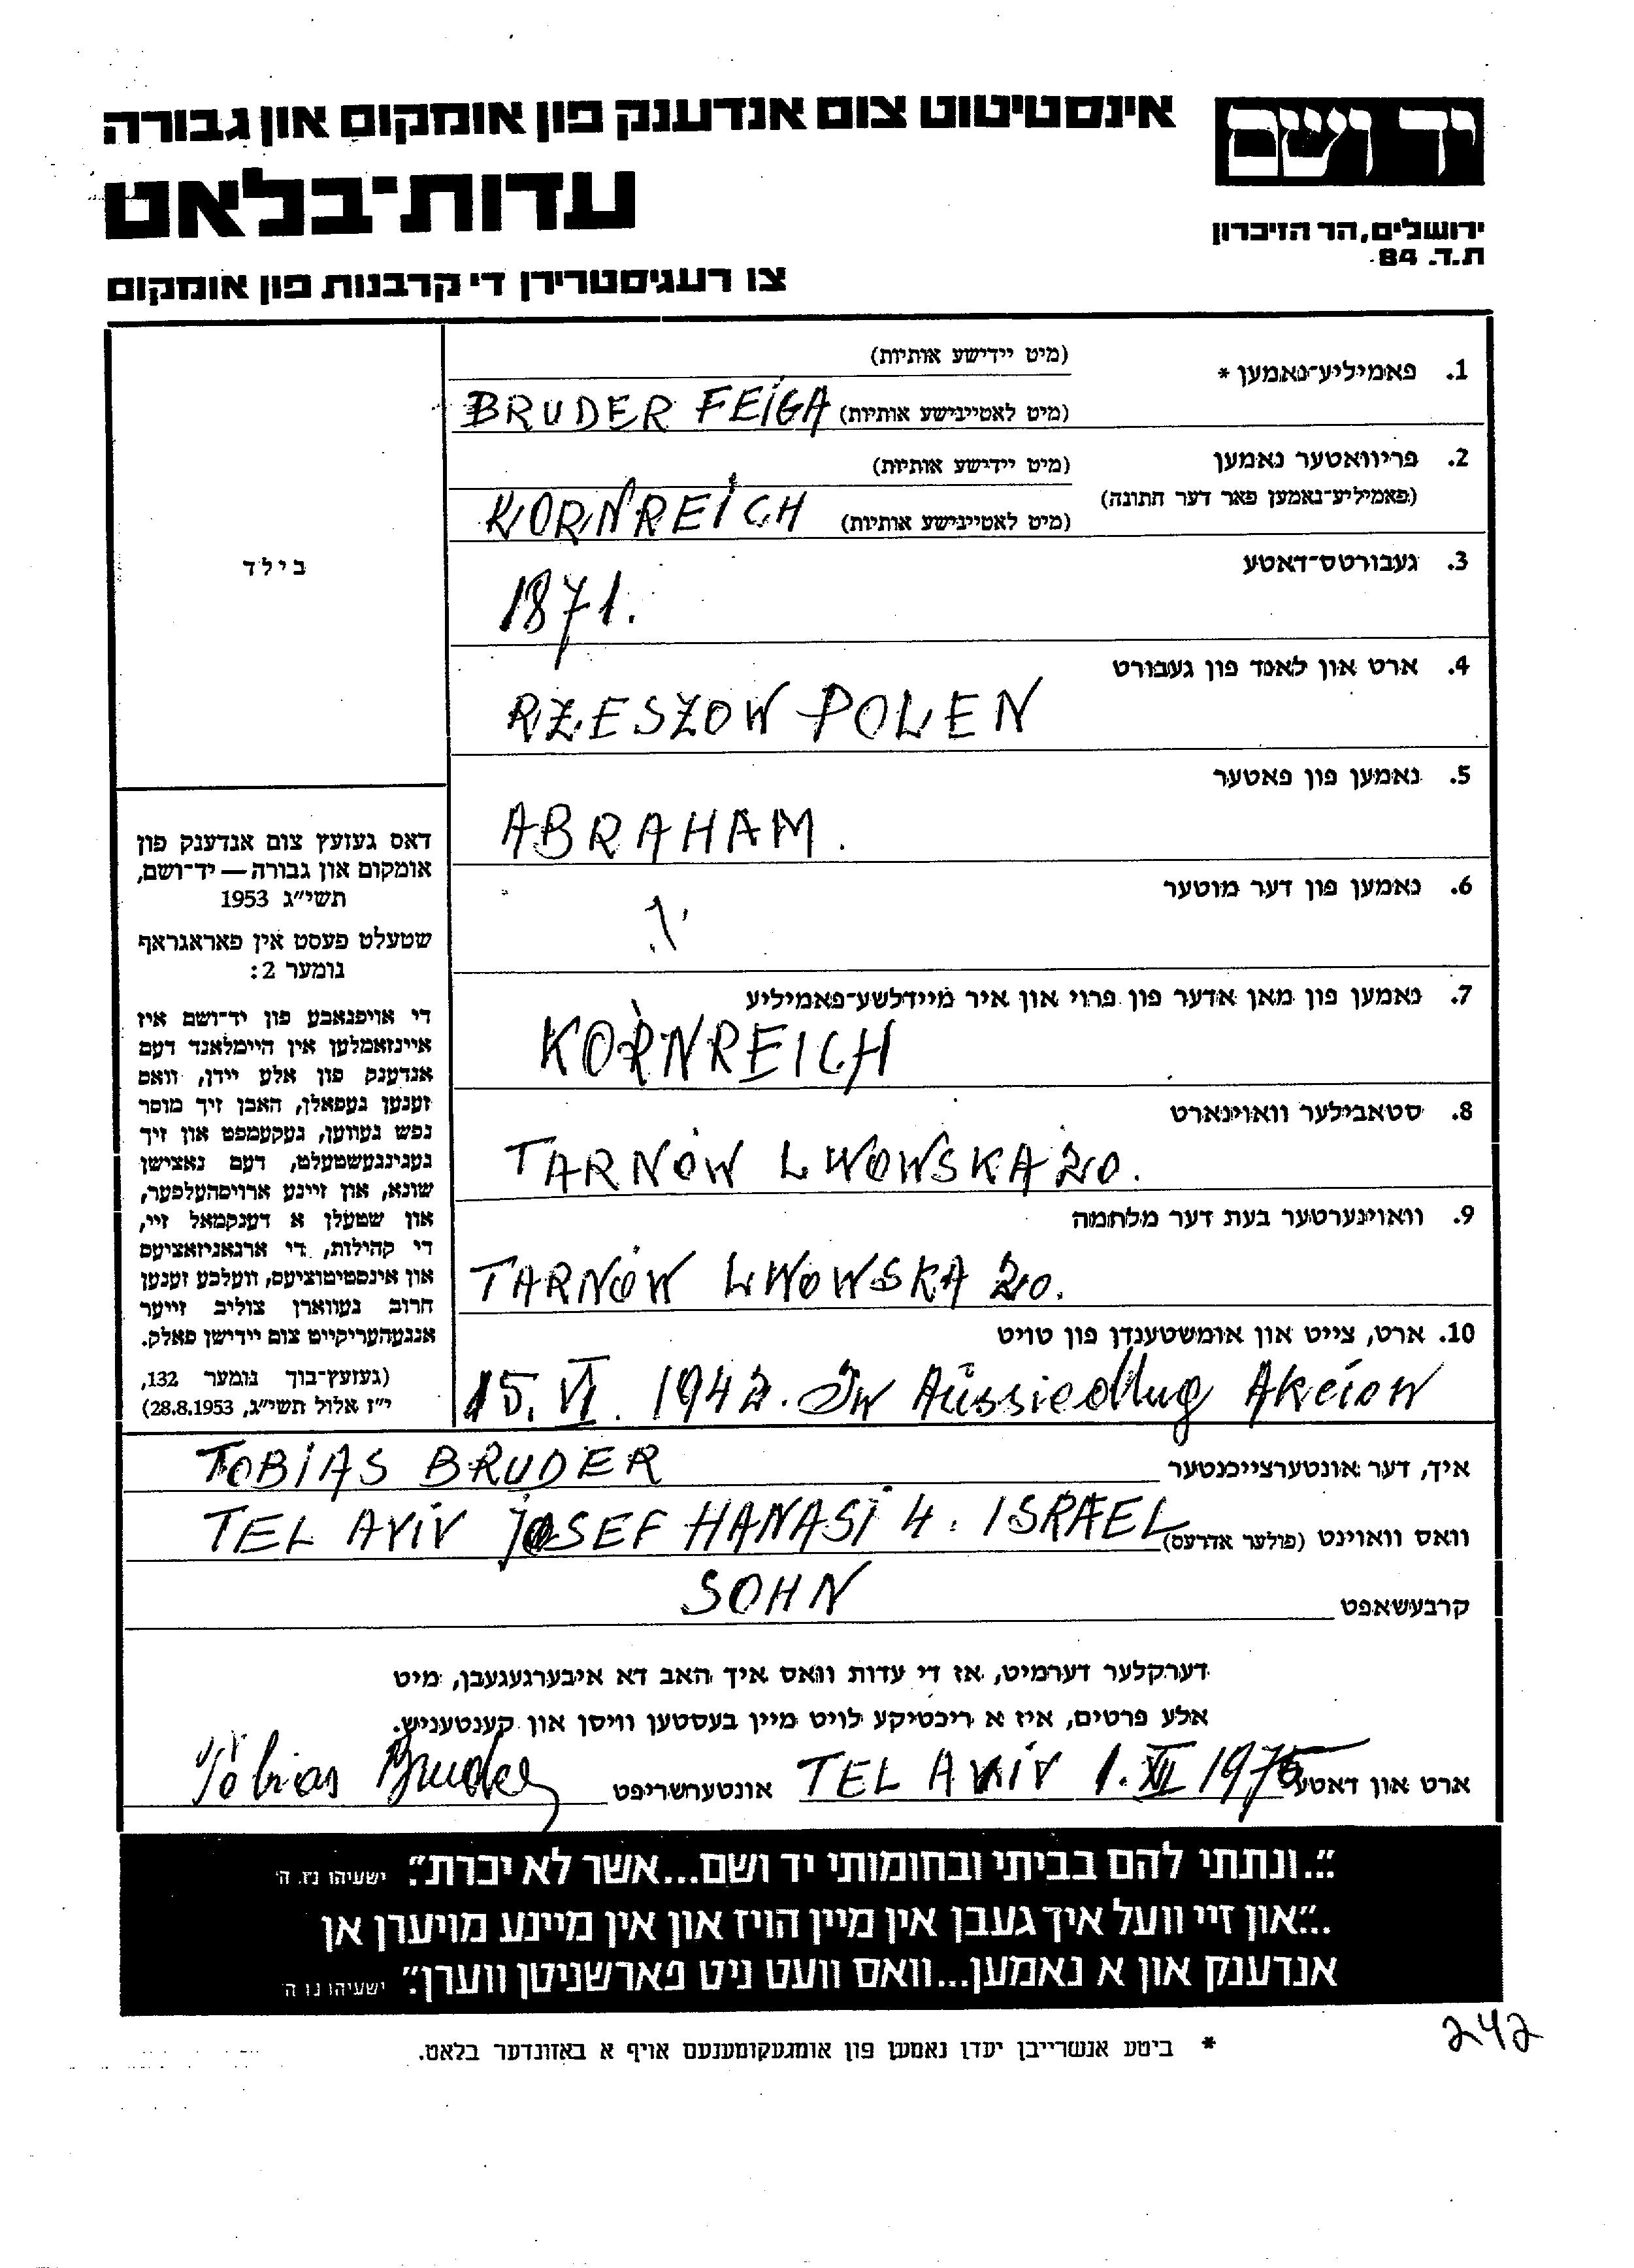 יד ושם
ירושלים, הר הזיכרון
ת.ד. 84
אינסטיטוט צום אנדענק פון אומקום און גבורה
עדות־בלאט
צו רעגיסטרירן די קרבנות פון אומקום
1. פאמיליע־נאמען *
(מיט יידישע אותיות)
(מיט לאטייגישע אותיות) BRUDER FEIGA
2. פריוואטער נאמען
(פאמיליע־נאמען פאר דער חתונה)
(מיט יידישע אותיות)
(מיט לאטייגישע אותיות) KORNREICH
3. געבורטס־דאטע
1871.
4. ארט און לאנד פון געבורט
RZESZOW POLEN
5. נאמען פון פאטער
ABRAHAM.
6. נאמען פון דער מוטער
?
7. נאמען פון מאן אדער פון פרוי און איר מיידלשע־פאמיליע
KORNREICH
8. סטאבילער וואוינארט
TARNÓW LWOWSKA 20.
9. וואוינערטער בעת דער מלחמה
TARNÓW LWOWSKA 20.
10. ארט, צייט און אומשטענדן פון טויט
15. VI. 1942. In Aüssiedlug Akcion
בילד
דאס געזעץ צום אנדענק פון
אומקום און גבורה — יד־ושם,
תשי"ג 1953
שטעלט פעסט אין פאראגראף
נומער 2:
די אויפגאבע פון יד־ושם איז
איינזאמלען אין היימלאנד דעם
אנדענק פון אלע יידן, וואס
זענען געפאלן, האבן זיך מוסר
נפש געווען, געקעמפט און זיך
געגינגעשטעלט, דעם נאצישן
שונא, און זיינע ארויסהעלפער,
און שטעלן א דענקמאל זיי,
די קהילות, די ארגאניזאציעס
און אינסטיטוציעס, וועלכע זענען
חרוב געווארן צוליב זייער
אנגעהעריקייט צום יידישן פאלק.
(געזעץ־בוך נומער 132,
י"ז אלול תשי"ג, 28.8.1953)
איך, דער אונטערצייכנטער TOBIAS BRUDER
וואס וואוינט (פולער אדרעס) TEL AVIV JOSEF HANASI 4. ISRAEL
קרבעשאפט SOHN
דערקלער דערמיט, אז די עדות וואס איך האב דא איבערגעגעבן, מיט
אלע פרטים, איז א ריכטיקע לויט מיין בעסטען וויסן און קענטעניש.
ארט און דאטע TEL AVIV 1. XII 1975 אונטערשריפט Tobias Bruder
"...ונתתי להם בביתי ובחומותי יד ושם...אשר לא יכרת". ישעיהו נו, ה'
"...און זיי וועל איך געבן אין מיין הויז און אין מיינע מויערן אן
אנדענק און א נאמען...וואס וועט ניט פארשניטן ווערן". ישעיהו נו ה'
242
* ביטע אנשרייבן יעדן נאמען פון אומגעקומענעם אויף א באזונדער בלאט.